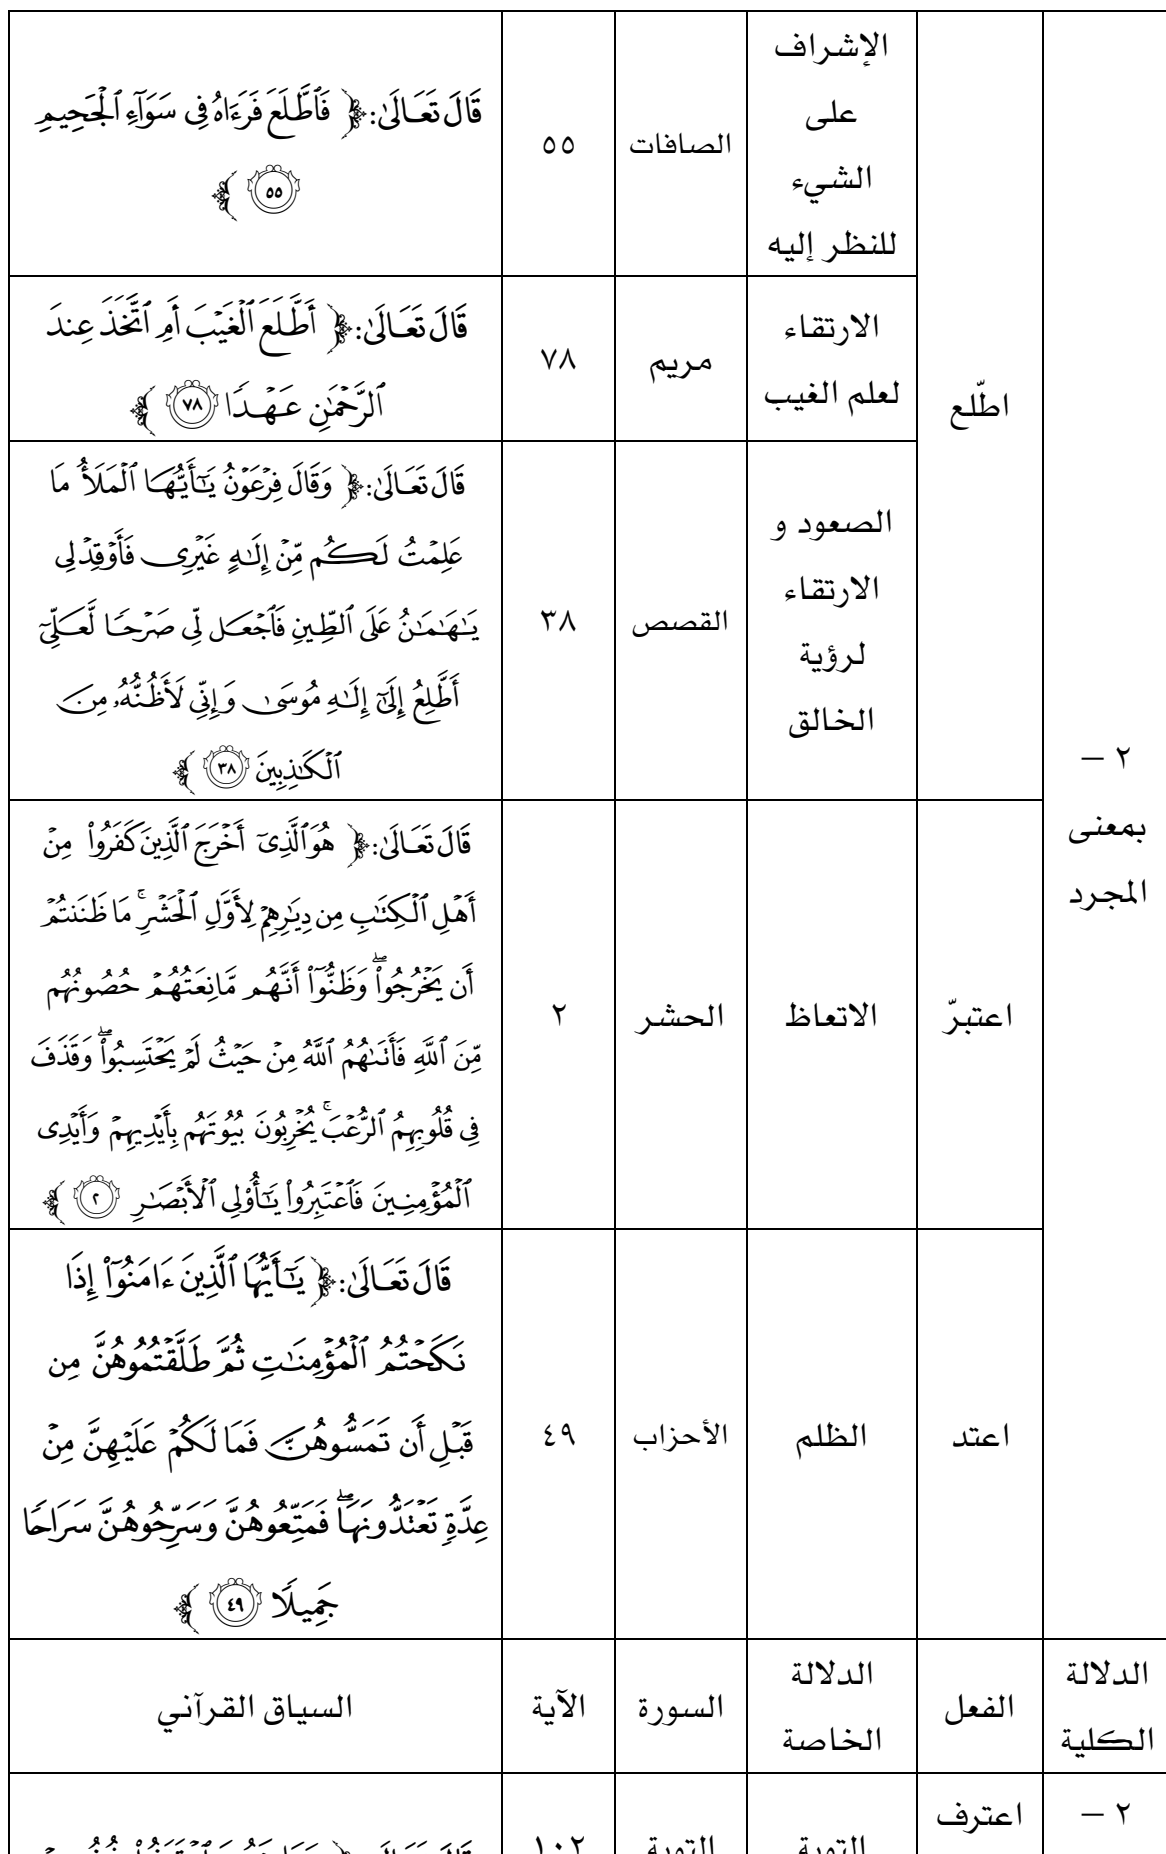 ٢ –
بمعنى
المجرد
اطّلع
الإشراف
على
الشيء
للنظر إليه
الصافات
٥٥
قَالَ تَعَالَىٰ: ﴿ فَٱطَّلَعَ فَرَءَاهُ فِى سَوَآءِ ٱلْجَحِيمِ
٥٥ ﴾
الارتقاء
لعلم الغيب
مريم
٧٨
قَالَ تَعَالَىٰ: ﴿ أَطَّلَعَ ٱلْغَيْبَ أَمِ ٱتَّخَذَ عِندَ
ٱلرَّحْمَٰنِ عَهْدًا ٧٨ ﴾
الصعود و
الارتقاء
لرؤية
الخالق
القصص
٣٨
قَالَ تَعَالَىٰ: ﴿ وَقَالَ فِرْعَوْنُ يَٰٓأَيُّهَا ٱلْمَلَأُ مَا
عَلِمْتُ لَكُم مِّنْ إِلَٰهٍ غَيْرِى فَأَوْقِدْ لِى
يَٰهَٰمَٰنُ عَلَى ٱلطِّينِ فَٱجْعَل لِّى صَرْحًا لَّعَلِّىٓ
أَطَّلِعُ إِلَىٰٓ إِلَٰهِ مُوسَىٰ وَإِنِّى لَأَظُنُّهُۥ مِنَ
ٱلْكَٰذِبِينَ ٣٨ ﴾
اعتبرّ
الاتعاظ
الحشر
٢
قَالَ تَعَالَىٰ: ﴿ هُوَ ٱلَّذِىٓ أَخْرَجَ ٱلَّذِينَ كَفَرُوا۟ مِنْ
أَهْلِ ٱلْكِتَٰبِ مِن دِيَٰرِهِمْ لِأَوَّلِ ٱلْحَشْرِ ۚ مَا ظَنَنتُمْ
أَن يَخْرُجُوا۟ ۖ وَظَنُّوٓا۟ أَنَّهُم مَّانِعَتُهُمْ حُصُونُهُم
مِّنَ ٱللَّهِ فَأَتَىٰهُمُ ٱللَّهُ مِنْ حَيْثُ لَمْ يَحْتَسِبُوا۟ ۖ وَقَذَفَ
فِى قُلُوبِهِمُ ٱلرُّعْبَ ۚ يُخْرِبُونَ بُيُوتَهُم بِأَيْدِيهِمْ وَأَيْدِى
ٱلْمُؤْمِنِينَ فَٱعْتَبِرُوا۟ يَٰٓأُو۟لِى ٱلْأَبْصَٰرِ ٢ ﴾
اعتد
الظلم
الأحزاب
٤٩
قَالَ تَعَالَىٰ: ﴿ يَٰٓأَيُّهَا ٱلَّذِينَ ءَامَنُوٓا۟ إِذَا
نَكَحْتُمُ ٱلْمُؤْمِنَٰتِ ثُمَّ طَلَّقْتُمُوهُنَّ مِن
قَبْلِ أَن تَمَسُّوهُنَّ فَمَا لَكُمْ عَلَيْهِنَّ مِنْ
عِدَّةٍ تَعْتَدُّونَهَا ۖ فَمَتِّعُوهُنَّ وَسَرِّحُوهُنَّ سَرَاحًا
جَمِيلًا ٤٩ ﴾
الدلالة
الكلية
الفعل
الدلالة
الخاصة
السورة
الآية
السياق القرآني
٢ –
اعترف
التوبة
التوبة
١٠٢